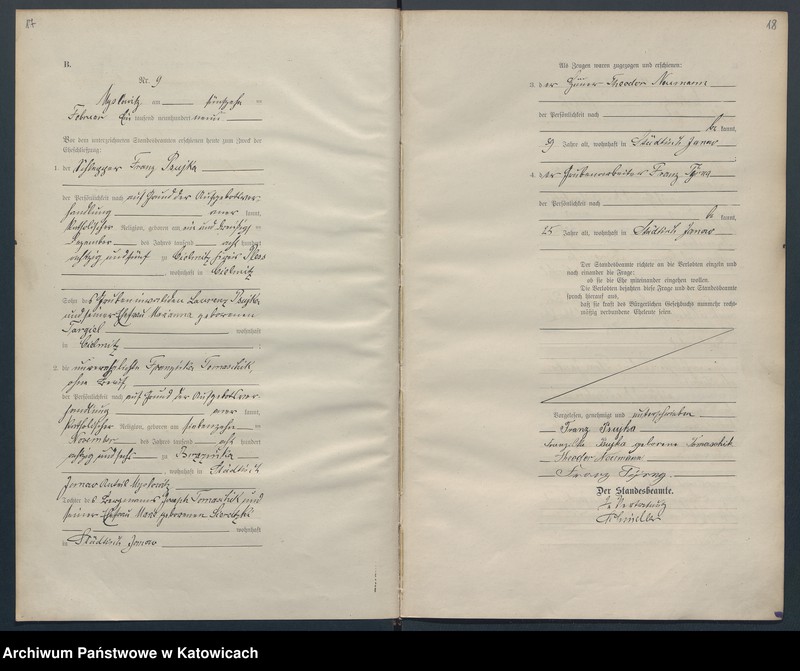 17
B.
Nr. 9
Myslowitz am fünfzehn
Februar Ein tausend neunhundert neun
Vor dem unterzeichneten Standesbeamten erschienen heute zum Zweck der
Eheschließung:
1. der Schlepper Franz Psujka
der Persönlichkeit nach auf Grund der Aufgebotsver-
handlung aner kannt,
katholischer Religion, geboren am ein und dreißig
Dezember des Jahres tausend acht hundert
achtzig und fünf zu
, wohnhaft in
Sohn des Grubeninvaliden Laurenz Psujka
und seiner Ehefrau Marianna geborenen
wohnhaft
in
2. die unverehelichte Franziska Tomaschik,
ohne Beruf,
der Persönlichkeit nach auf Grund der Aufgebotsver-
handlung aner kannt,
katholischer Religion, geboren am siebenzehn
November des Jahres tausend acht hundert
achtzig und sechs zu
, wohnhaft in Städtisch
Janow Anteil Myslowitz
Tochter des Bergmanns Joseph Tomaschik und
seiner Ehefrau geborenen
wohnhaft
in Städtisch Janow
18
Als Zeugen waren zugezogen und erschienen:
3. der Häuer Theodor Neumann
der Persönlichkeit nach
be kannt,
39 Jahre alt, wohnhaft in Städtisch Janow
4. der Grubenarbeiter Franz
der Persönlichkeit nach
be kannt,
25 Jahre alt, wohnhaft in Städtisch Janow
Der Standesbeamte richtete an die Verlobten einzeln und
nach einander die Frage:
ob sie die Ehe miteinander eingehen wollen.
Die Verlobten bejahten diese Frage und der Standesbeamte
sprach hierauf aus,
daß sie kraft des Bürgerlichen Gesetzbuchs nunmehr recht-
mäßig verbundene Eheleute seien.
Vorgelesen, genehmigt und unterschrieben
Franz Psujka
Franziska Psujka geborene Tomaschik
Theodor Neumann
Franz
Der Standesbeamte.
In Vertretung
Archiwum Państwowe w Katowicach